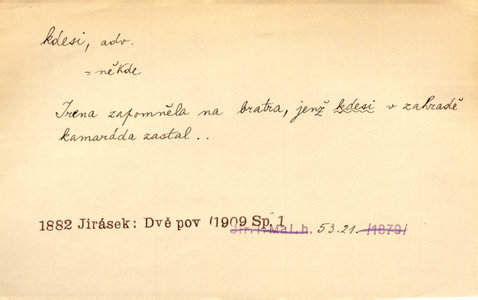 kdesi, adv.
= někde
Irena zapomněla na bratra, jenž kdesi v zahradě
kamaráda zastal..
1882 Jirásek: Dvě pov /1909 Sp. 1
Jir. Mal. h. 53.21. /1879/